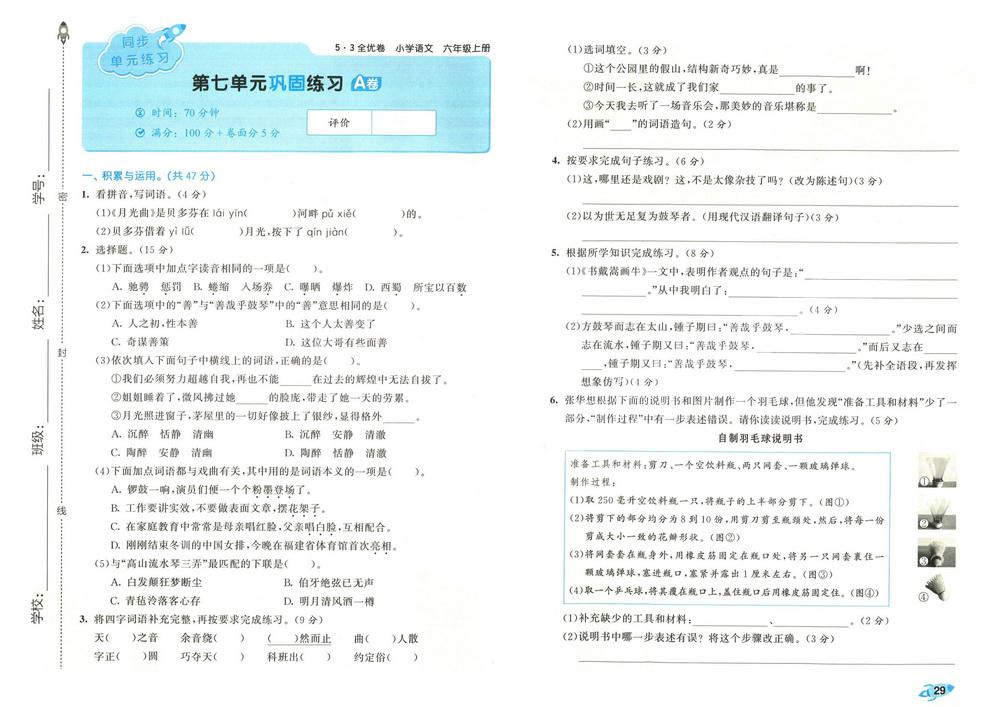 学号：
姓名：
班级：
学校：
密
封
线
同步
单元练习
5·3全优卷 小学语文 六年级上册
第七单元巩固练习 A卷
时间：70分钟
满分：100分+卷面分5分
评价
一、积累与运用。（共47分）
1. 看拼音，写词语。（4分）
（1）《月光曲》是贝多芬在lái yīn（ ）河畔pǔ xiě（ ）的。
（2）贝多芬借着yì lǚ（ ）月光，按下了qín jiàn（ ）。
2. 选择题。（15分）
（1）下面选项中加点字读音相同的一项是（ ）。
A. 驰骋 惩罚 B. 蜷缩 入场券 C. 曝晒 爆炸 D. 西蜀 所宝以百数
（2）下面选项中的“善”与“善哉乎鼓琴”中的“善”意思相同的是（ ）。
A. 人之初，性本善 B. 这个人太善变了
C. 奇谋善策 D. 这位大哥有些面善
（3）依次填入下面句子中横线上的词语，正确的是（ ）。
①我们必须努力超越自我，再也不能____在过去的辉煌中无法自拔了。
②姐姐睡着了，微风拂过她____的脸庞，带走了她一天的劳累。
③月光照进窗子，茅屋里的一切好像披上了银纱，显得格外____。
A. 沉醉 恬静 清幽 B. 沉醉 安静 清澈
C. 陶醉 安静 清幽 D. 陶醉 恬静 清澈
（4）下面加点词语都与戏曲有关，其中用的是词语本义的一项是（ ）。
A. 锣鼓一响，演员们便一个个粉墨登场了。
B. 工作要讲实效，不要做表面文章，摆花架子。
C. 在家庭教育中常常是母亲唱红脸，父亲唱白脸，互相配合。
D. 刚刚结束冬训的中国女排，今晚在福建省体育馆首次亮相。
（5）与“高山流水琴三弄”最匹配的下联是（ ）。
A. 白发颠狂梦断尘 B. 伯牙绝弦已无声
C. 青毡泠落客心存 D. 明月清风酒一樽
3. 将四字词语补充完整，再按要求完成练习。（9分）
天（ ）之音 余音绕（ ） （ ）然而止 曲（ ）人散
字正（ ）圆 巧夺天（ ） 科班出（ ） 约定俗（ ）
（1）选词填空。（3分）
①这个公园里的假山，结构新奇巧妙，真是____啊！
②时间一长，这就成了我们家____的事了。
③今天我去听了一场音乐会，那美妙的音乐堪称是____。
（2）用画“____”的词语造句。（2分）
4. 按要求完成句子练习。（6分）
（1）这，哪里还是戏剧？这，不是太像杂技了吗？（改为陈述句）（3分）
（2）以为世无足复为鼓琴者。（用现代汉语翻译句子）（3分）
5. 根据所学知识完成练习。（8分）
（1）《书戴嵩画牛》一文中，表明作者观点的句子是：“____
____。”从中我明白了：____
____。（4分）
（2）方鼓琴而志在太山，锺子期曰：“善哉乎鼓琴，____。”少选之间而
志在流水，锺子期又曰：“善哉乎鼓琴，____。”而后又志在____
____，锺子期又曰：“善哉乎鼓琴，____。”（先补全语段，再发挥
想象仿写）（4分）
6. 张华想根据下面的说明书和图片制作一个羽毛球，但他发现“准备工具和材料”少了一
部分，“制作过程”中有一步表述错误。请你读读说明书，完成练习。（5分）
自制羽毛球说明书
准备工具和材料：剪刀、一个空饮料瓶、两只网套、一颗玻璃弹球。
制作过程：
（1）取250毫升空饮料瓶一只，将瓶子的上半部分剪下。（图①）
（2）将剪下的部分均分为8到10份，用剪刀剪至瓶颈处，然后，将每一份
剪成大小一致的花瓣形状。（图②）
（3）将网套套在瓶身外，用橡皮筋固定在瓶口处，将另一只网套裹住一
颗玻璃弹球，塞进瓶口，塞紧并露出1厘米左右。（图③）
（4）取一个乒乓球，将其覆在瓶口上，盖住瓶口后用橡皮筋固定住。（图④）
①
②
③
④
（1）补充缺少的工具和材料：____、____。（2分）
（2）说明书中哪一步表述有误？将这个步骤改正确。（3分）
29